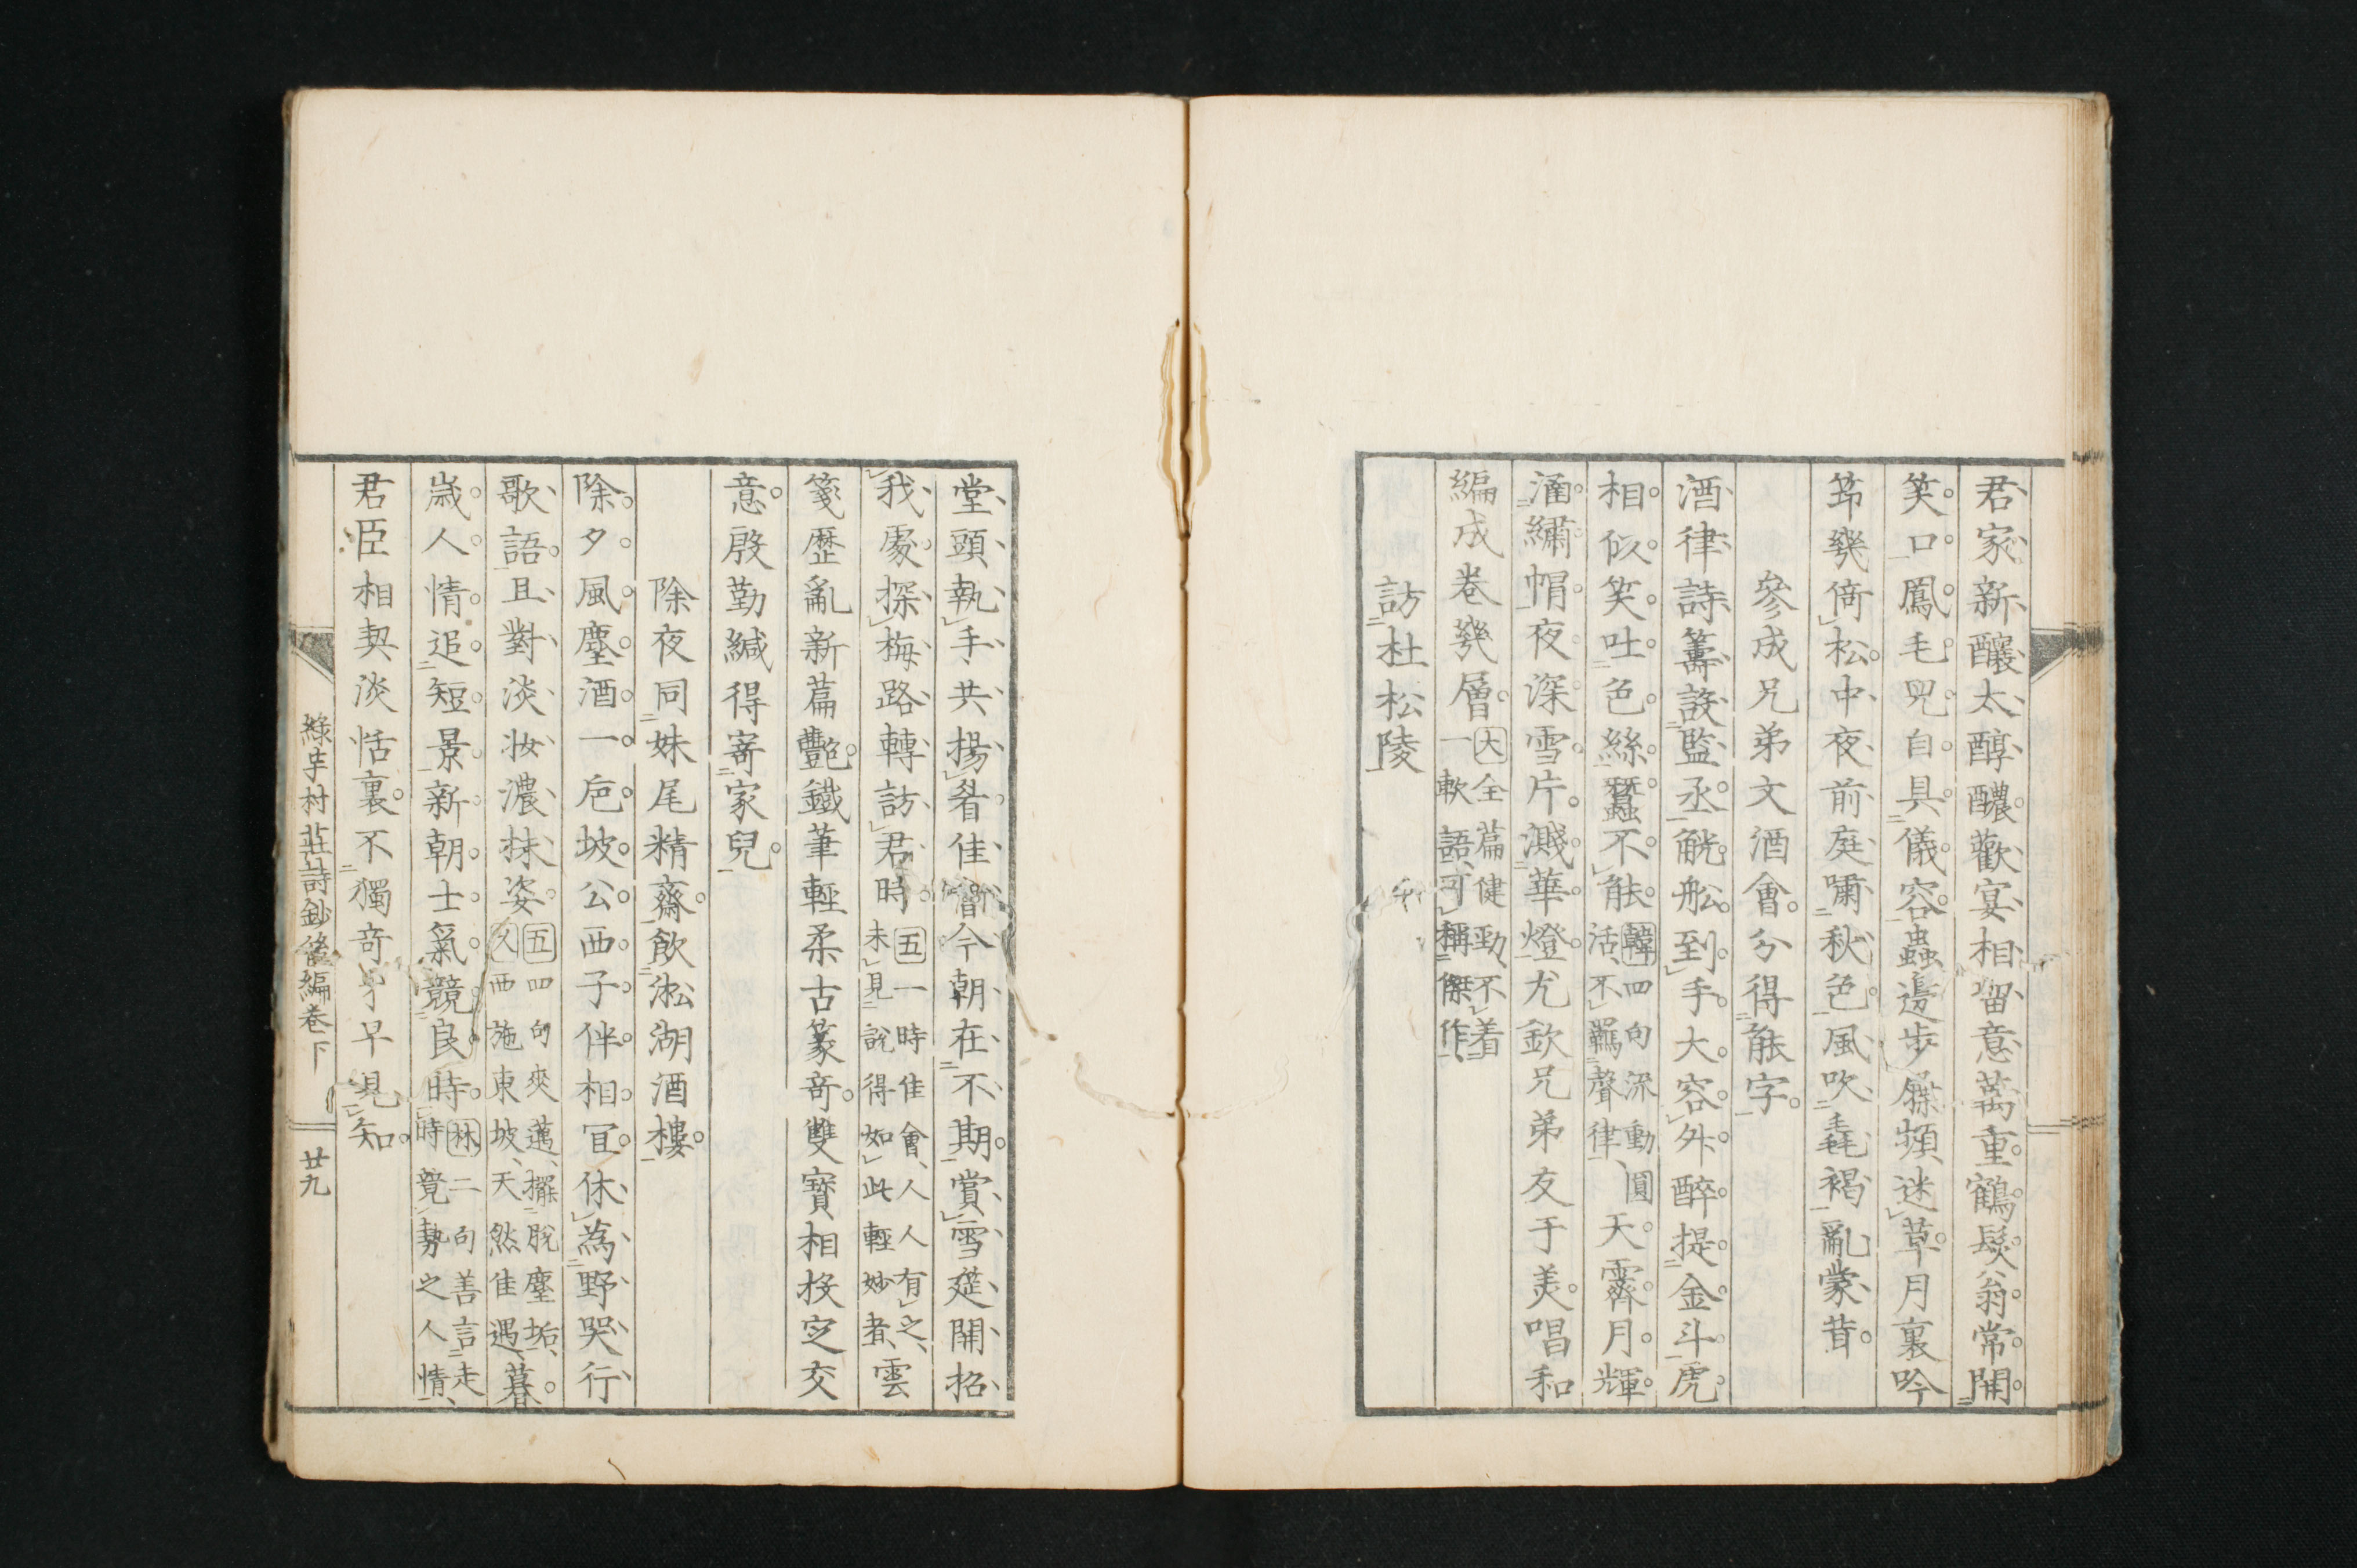 君家新釀太醇醲歡宴相留意萬重鶴髮翁常開
笑口鳳毛兒自具儀容蟲邊步屧頻迷草月裏吟
筇幾倚松中夜前庭嘯秋色風吹毳褐亂蒙茸
參成兄弟文酒會分得能字
酒律詩籌設監丞觥船到手大容外醉提金斗虎
相似笑吐色絲蠶不能
韓四句流動圓
活不羈聲律
天霽月輝
涌繡帽夜深雪片濺華燈尤欽兄弟友于美唱和
編成卷幾層
大全篇健勁不着
一軟語可稱傑作
訪杜松陵
堂頭執手共揚眉佳會今朝在不期賞雪筵開招
我處探梅路轉訪君時
五一時佳會人人有之
未見說得如此輕妙者
雲
箋歷亂新篇艷鐵筆輕柔古篆奇雙寶相投定交
意殷勤緘得寄家兒
除夜同妹尾精齋飲淞湖酒樓
除夕風塵酒一卮坡公西子伴相宜休為野哭行
歌語且對淡妝濃抹姿
五四句夾邁擺脫塵垢
久西施東坡天然佳遇
暮
歲人情追短景新朝士氣競良時
林二句善言走
時競勢之人情
君臣相契淡恬裏不獨奇才早見知
綠宇村莊詩鈔後編卷下
廿九